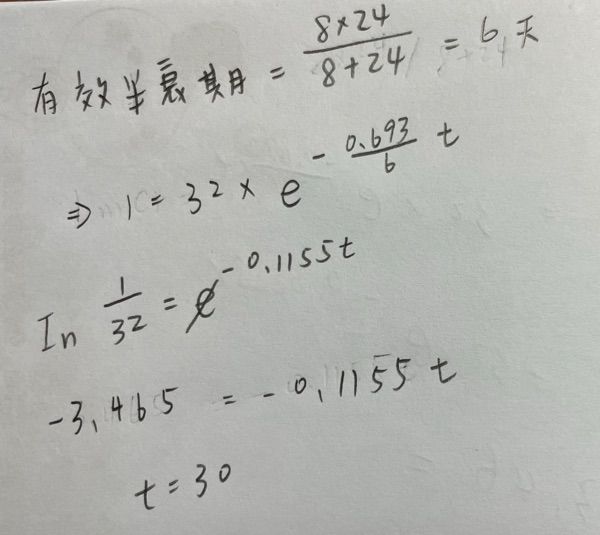 有效半衰期 = 8×24 / 8+24 = 6天
⇒ 1 = 32 × e^(- 0.693/6 t)
In 1/32 = e^(-0.1155t)
-3.465 = -0.1155 t
t = 30